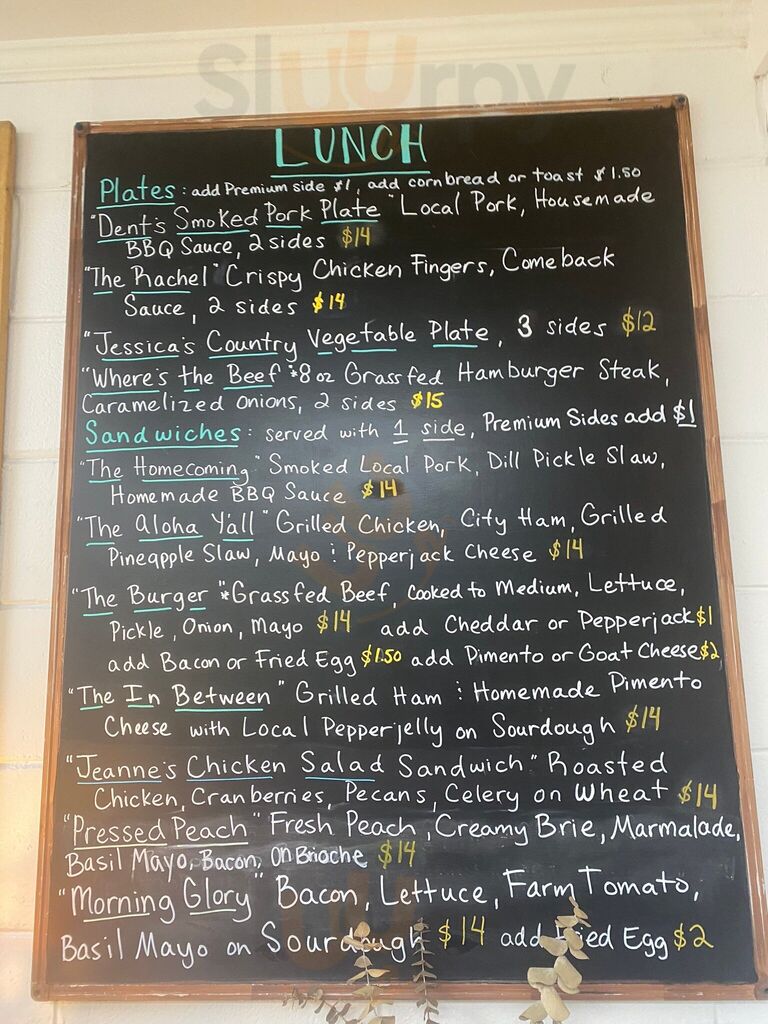 Sluurpy
LUNCH
Plates: add Premium side $1, add cornbread or toast $1.50
"Dent's Smoked Pork Plate" Local Pork, Housemade
BBQ Sauce, 2 sides $14
"The Rachel" Crispy Chicken Fingers, Comeback
Sauce, 2 sides $14
"Jessica's Country Vegetable Plate, 3 sides $12
"Where's the Beef "*8oz Grassfed Hamburger Steak,
Caramelized onions, 2 sides $15
Sandwiches: served with 1 side, Premium Sides add $1
"The Homecoming" Smoked Local Pork, Dill Pickle Slaw,
Homemade BBQ Sauce $14
"The Aloha Y'all" Grilled Chicken, City Ham, Grilled
Pineapple Slaw, Mayo : Pepperjack Cheese $14
"The Burger "*Grassfed Beef, Cooked to Medium, Lettuce,
Pickle, Onion, Mayo $14 add Cheddar or Pepperjack $1
add Bacon or Fried Egg $1.50 add Pimento or Goat Cheese $2
"The In Between" Grilled Ham : Homemade Pimento
Cheese with Local Pepperjelly on Sourdough $14
"Jeanne's Chicken Salad Sandwich" Roasted
Chicken, Cranberries, Pecans, Celery on Wheat $14
"Pressed Peach" Fresh Peach, Creamy Brie, Marmalade,
Basil Mayo, Bacon, On Brioche $14
"Morning Glory" Bacon, Lettuce, Farm Tomato,
Basil Mayo on Sourdough $14 add Fried Egg $2